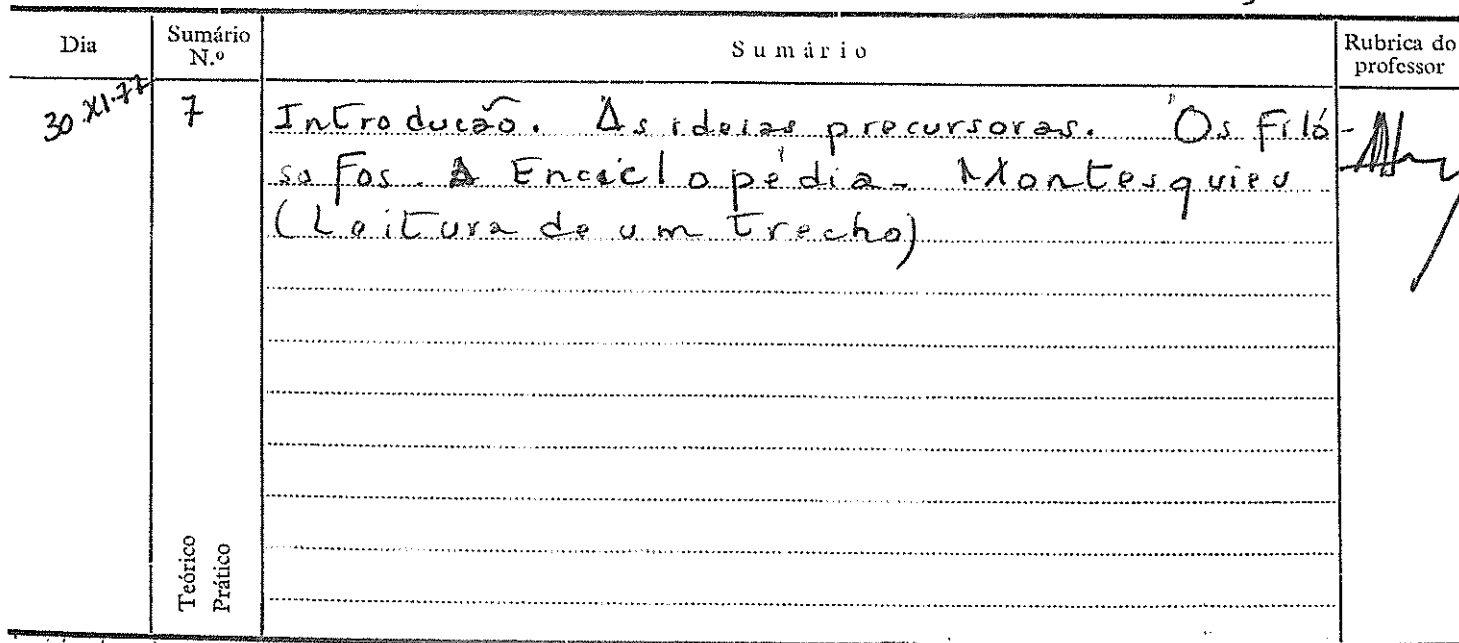 Dia
Sumário
N.º
Sumário
Rubrica do
professor
30.XI.77
7
Introducão. As ideias precursoras. Os Filó-
sofos. A Enciclopédia - Montesquieu
(Leitura de um trecho)
Teórico
Prático